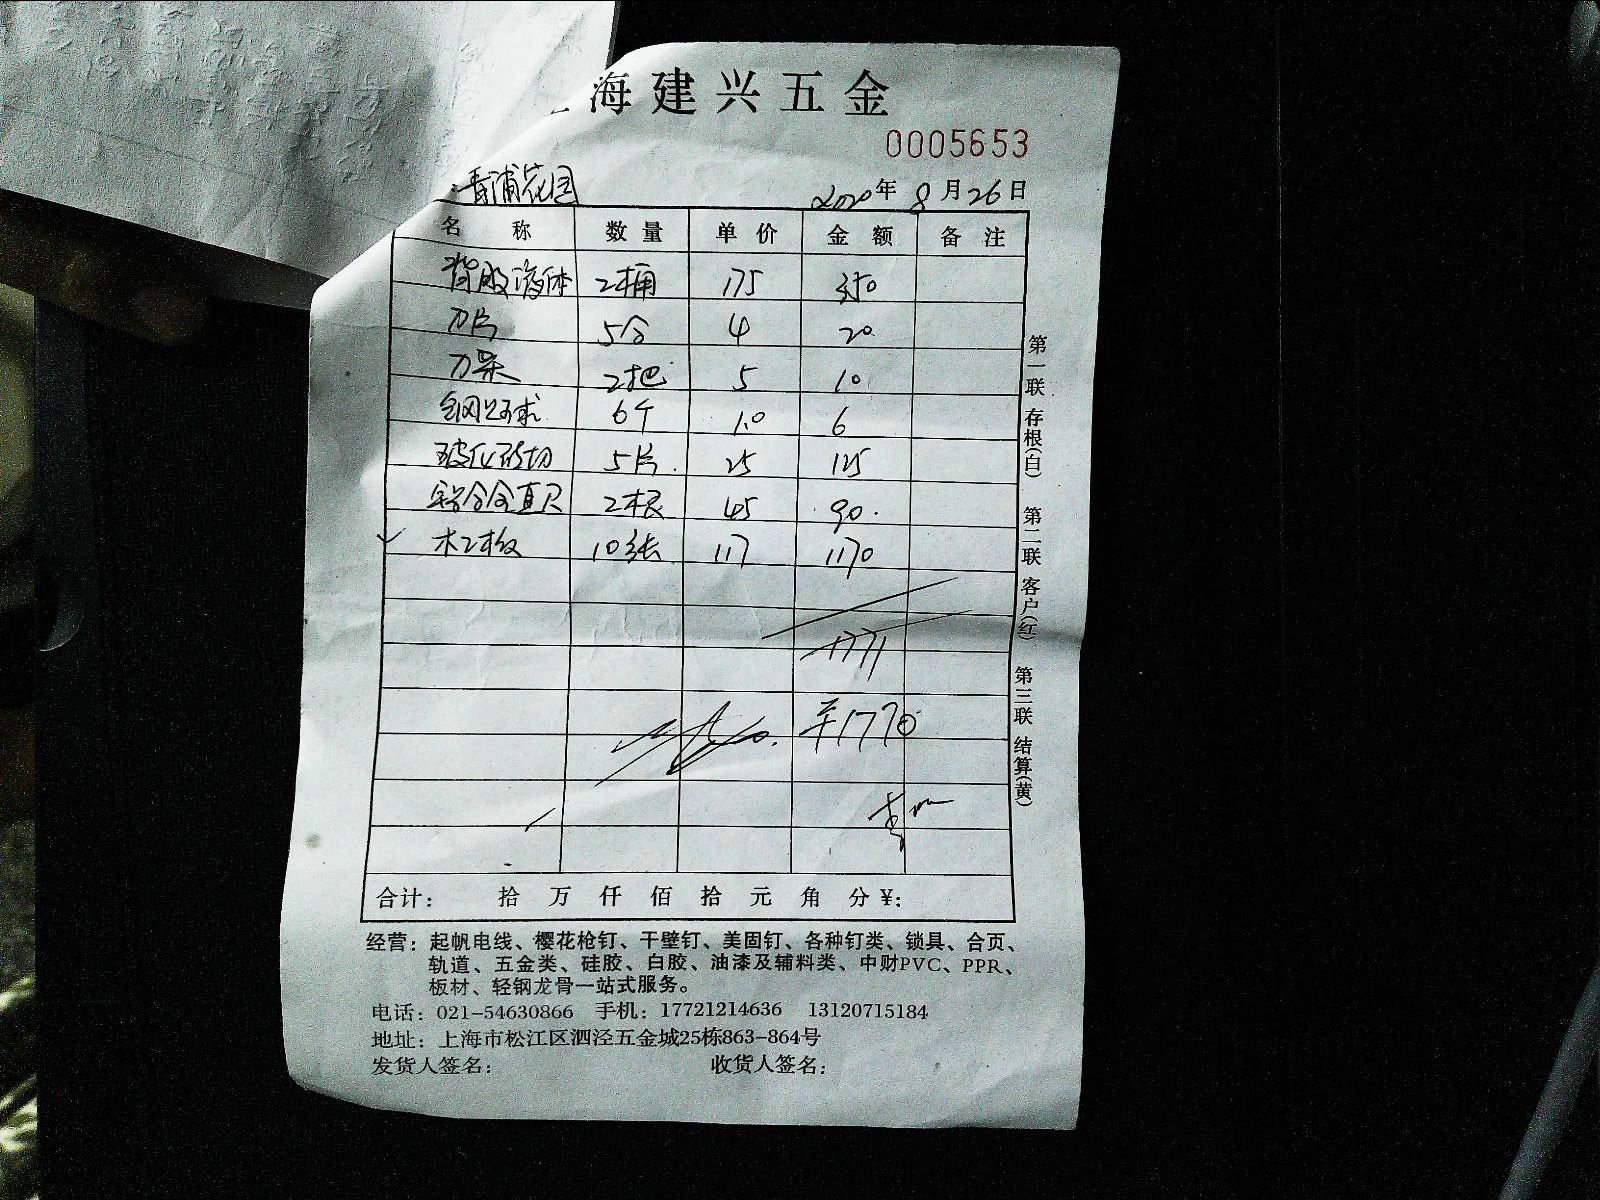 海建兴五金
0005653
青浦花园 2020年8月26日
名 称 数 量 单 价 金 额 备 注
背胶液体 2桶 175 350
刀片 5合 4 20
刀架 2把 5 10
钢丝球 6个 1.0 6
玻化砖切 5片 25 125
铝合金直尺 2根 45 90
木工板 10张 117 1170
1771
¥1770
合计: 拾 万 仟 佰 拾 元 角 分¥:
第一联 存根(白) 第二联 客户(红) 第三联 结算(黄)
经营: 起帆电线、樱花枪钉、干壁钉、美固钉、各种钉类、锁具、合页、
轨道、五金类、硅胶、白胶、油漆及辅料类、中财PVC、PPR、
板材、轻钢龙骨一站式服务。
电话: 021-54630866 手机: 17721214636 13120715184
地址: 上海市松江区泗泾五金城25栋863-864号
发货人签名: 收货人签名: